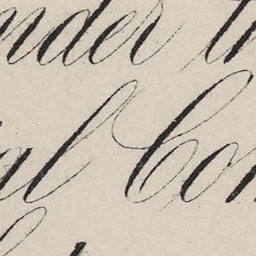 nder th
ial Con